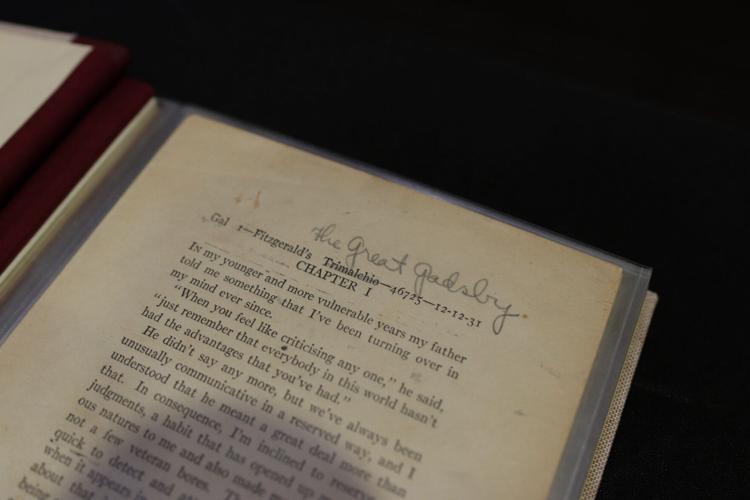 the Great Gadsby.
Gal 1—Fitzgerald's Trimalchio—46725—12-12-31
CHAPTER I
In my younger and more vulnerable years my father
told me something that I've been turning over in
my mind ever since.
"When you feel like criticising any one," he said,
"just remember that everybody in this world hasn't
had the advantages that you've had."
He didn't say any more, but we've always been
unusually communicative in a reserved way, and I
understood that he meant a great deal more than
that. In consequence, I'm inclined to reserve
judgments, a habit that has opened up
ous natures to me and also made
not a few veteran bores. The
quick to detect and
when it appears in
about that
being